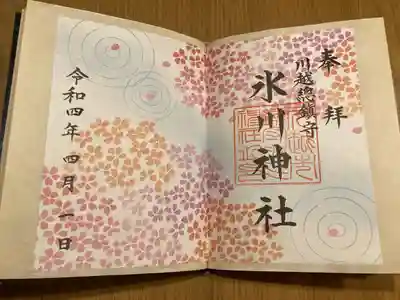 奉拝
川越総鎮守
氷川神社
令和四年四月一日